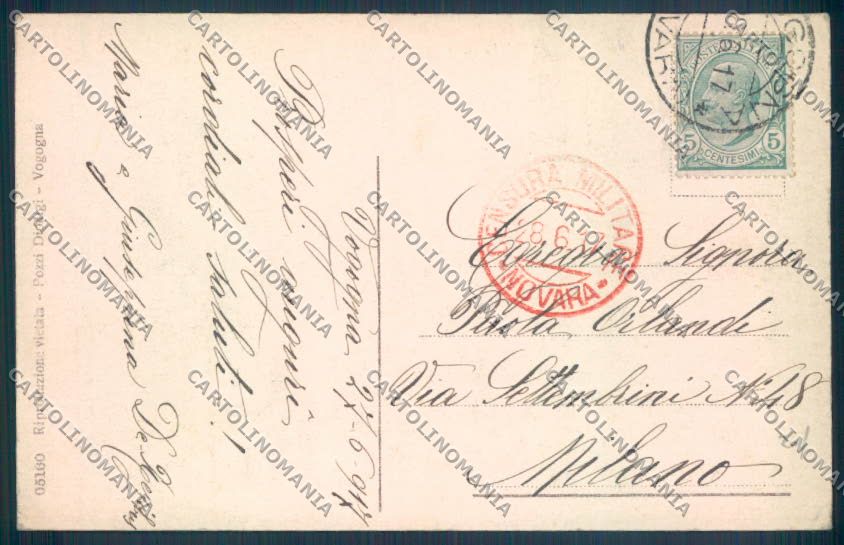 05160 Riproduzione Vietata - Pozzi Dionigi - Vogogna
Vogogna 27-6-917
cordiali saluti!
Maria e Giuseppina De
VOGOGNA
NOVARA
17
5 CENTESIMI 5
CENSURA MILITARE
28.6.17
NOVARA
Signora
Paola Orlandi
Via Settembrini N. 48
Milano
CARTOLINOMANIA